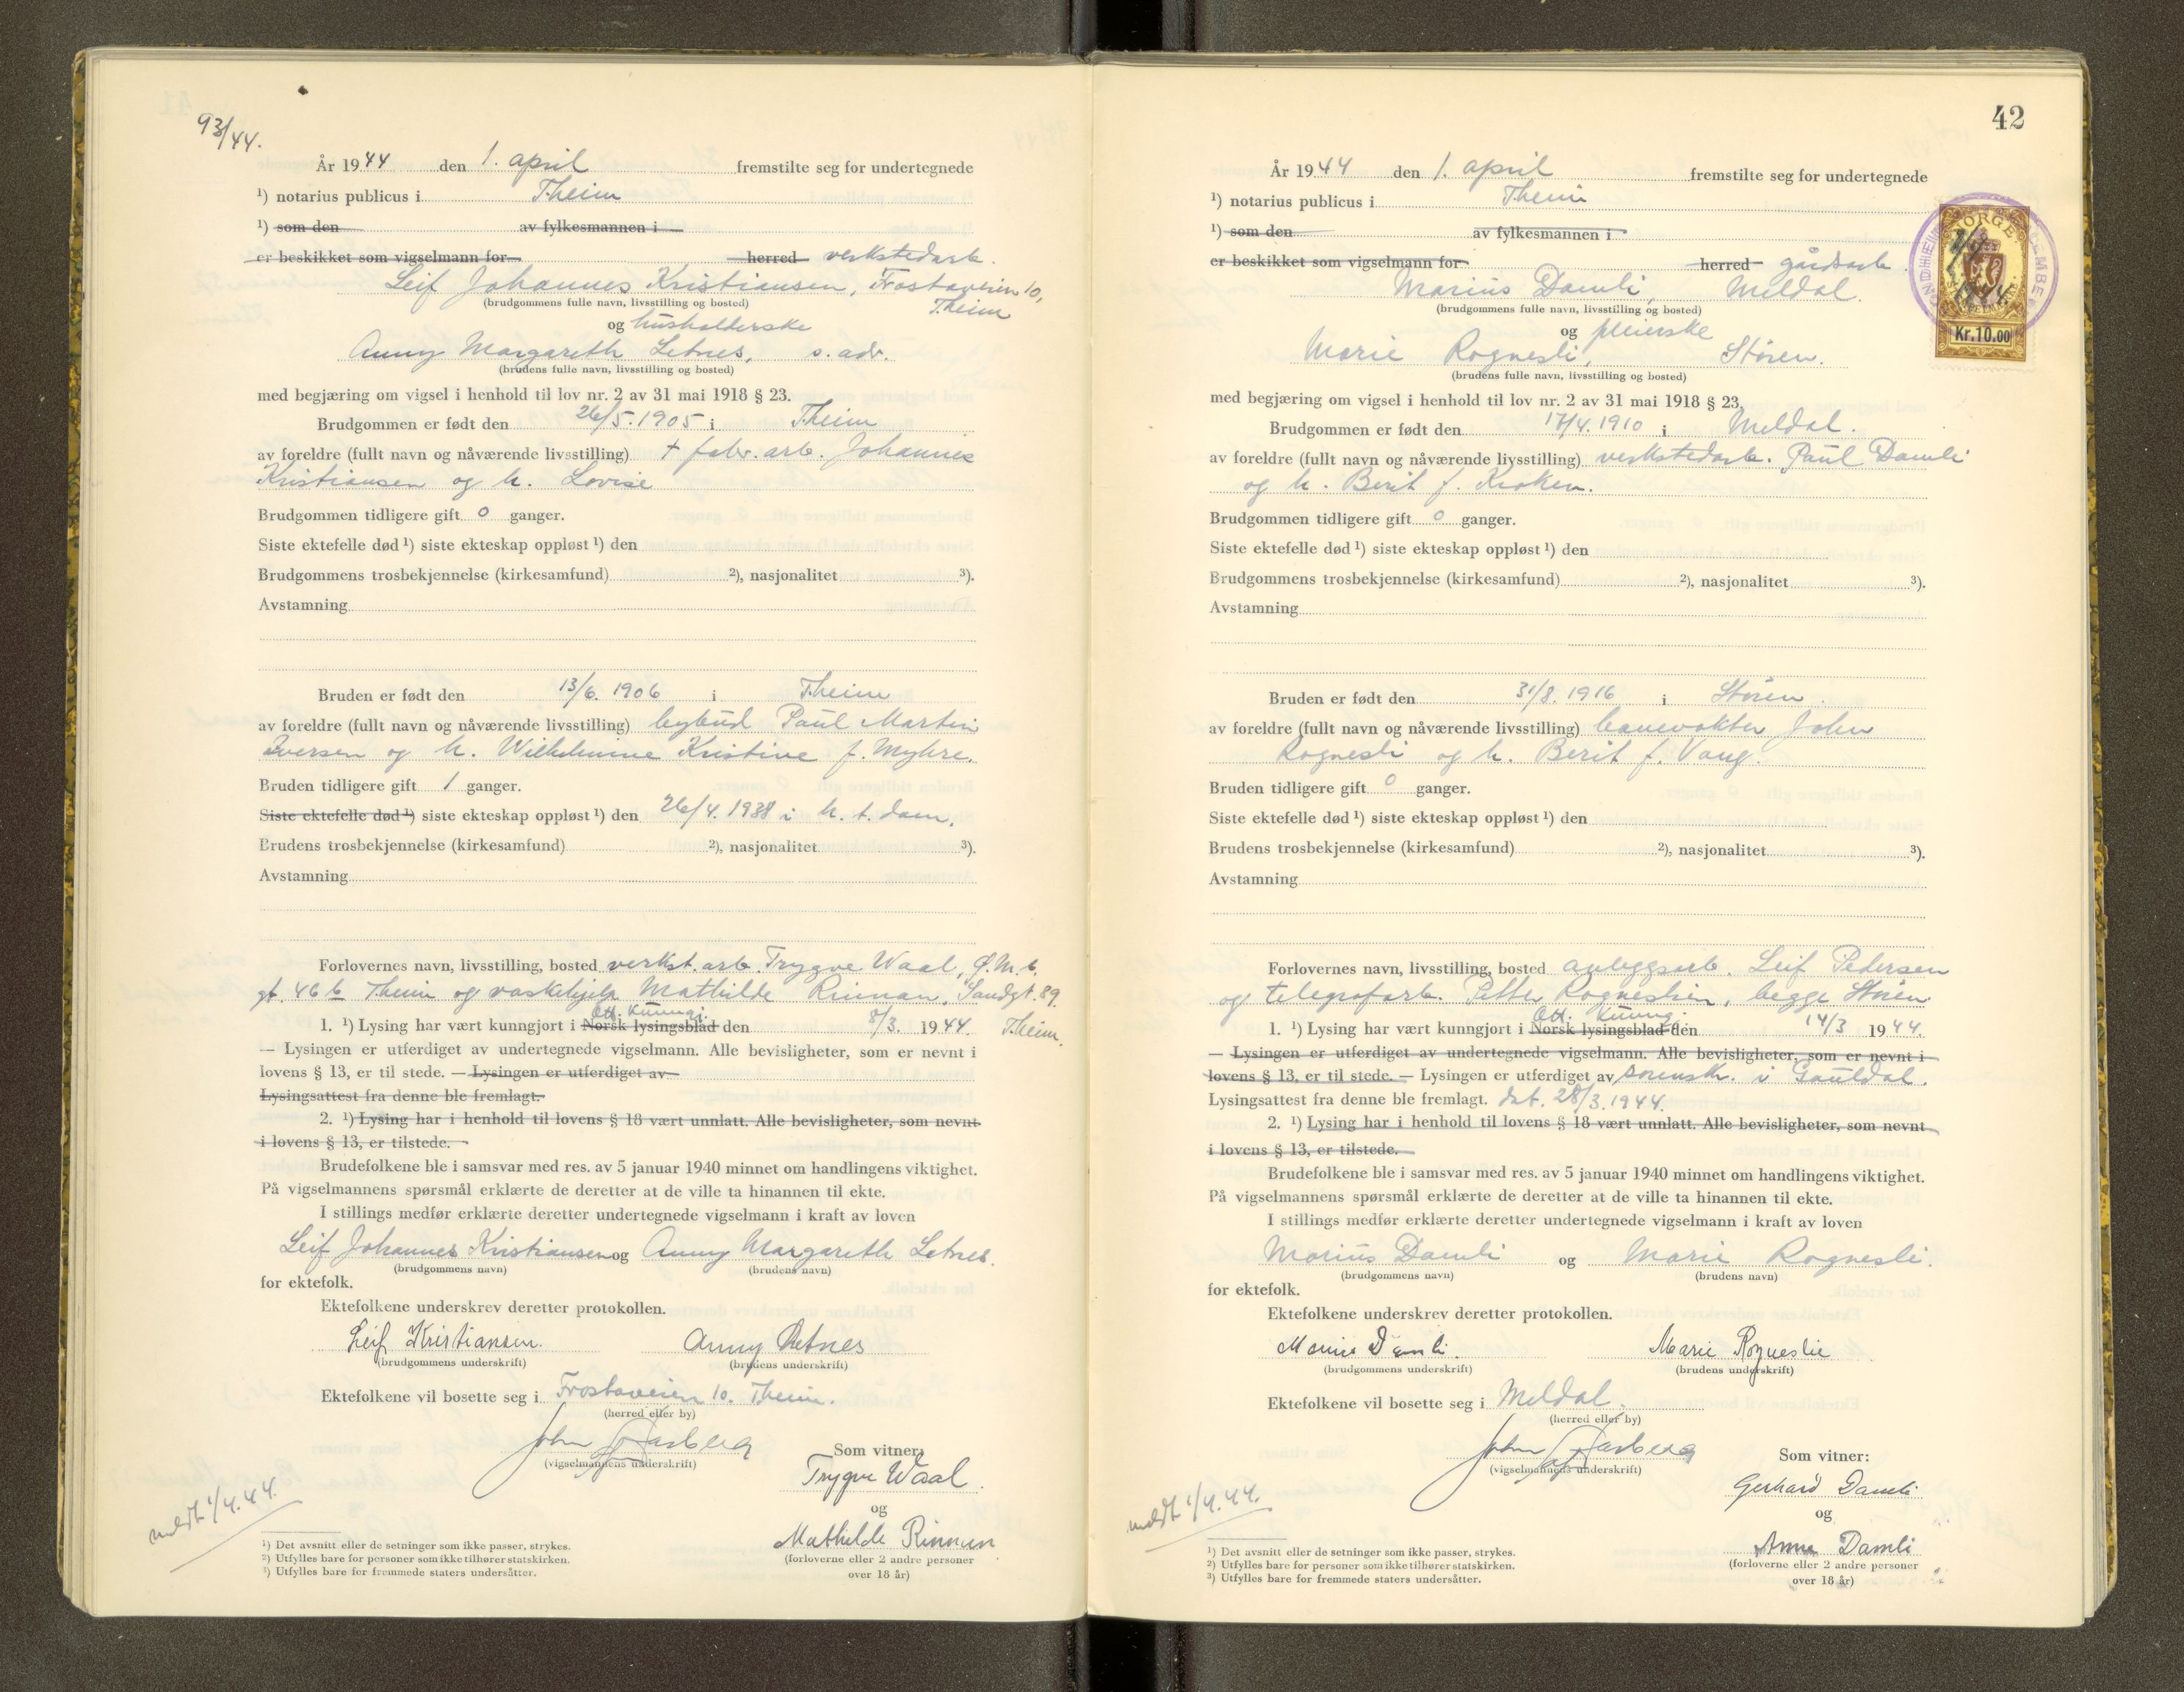 93/44.
År 1944 den 1. april fremstilte seg for undertegnede
¹) notarius publicus i Theim
¹) som den av fylkesmannen i
er beskikket som vigselmann for herred verkstedarb.
Leif Johannes Kristiansen, Frostaveien 10,
(brudgommens fulle navn, livsstilling og bosted) Theim
og husholderske
Anny Margareth Letnes, s. adr.
(brudens fulle navn, livsstilling og bosted)
med begjæring om vigsel i henhold til lov nr. 2 av 31 mai 1918 § 23.
Brudgommen er født den 26/5. 1905 i Theim
av foreldre (fullt navn og nåværende livsstilling) + fabr. arb. Johannes
Kristiansen og h. Lovise
Brudgommen tidligere gift 0 ganger.
Siste ektefelle død ¹) siste ekteskap oppløst ¹) den
Brudgommens trosbekjennelse (kirkesamfund) ²), nasjonalitet ³).
Avstamning
Bruden er født den 13/6. 1906 i Theim
av foreldre (fullt navn og nåværende livsstilling) bybud Paul Martin
Iversen og h. Wilhelmine Kristine f. Myhre.
Bruden tidligere gift 1 ganger.
Siste ektefelle død ¹) siste ekteskap oppløst ¹) den 26/4. 1938 i h. t. dom.
Brudens trosbekjennelse (kirkesamfund) ²), nasjonalitet ³).
Avstamning
Forlovernes navn, livsstilling, bosted verkst. arb. Trygve Waal, Ø. M. b.
gt. 46 b Theim og vaskehjelp Mathilde Rinnan, Sandgt. 89.
Off. Kunngj.
1. ¹) Lysing har vært kunngjort i Norsk lysingsblad den 8/3. 1944. Theim.
— Lysingen er utferdiget av undertegnede vigselmann. Alle bevisligheter, som er nevnt i
lovens § 13, er til stede. — Lysingen er utferdiget av
Lysingsattest fra denne ble fremlagt.
2. ¹) Lysing har i henhold til lovens § 18 vært unnlatt. Alle bevisligheter, som nevnt
i lovens § 13, er tilstede.
Brudefolkene ble i samsvar med res. av 5 januar 1940 minnet om handlingens viktighet.
På vigselmannens spørsmål erklærte de deretter at de ville ta hinannen til ekte.
I stillings medfør erklærte deretter undertegnede vigselmann i kraft av loven
Leif Johannes Kristiansen og Anny Margareth Letnes.
(brudgommens navn) (brudens navn)
for ektefolk.
Ektefolkene underskrev deretter protokollen.
Leif Kristiansen. Anny Letnes
(brudgommens underskrift) (brudens underskrift)
Ektefolkene vil bosette seg i Frostaveien 10. Theim.
(herred eller by)
John Aasberg
(vigselmannens underskrift)
Som vitner:
Trygve Waal
og
Mathilde Rinnan
(forloverne eller 2 andre personer
over 18 år)
meldt 1/4.44.
¹) Det avsnitt eller de setninger som ikke passer, strykes.
²) Utfylles bare for personer som ikke tilhører statskirken.
³) Utfylles bare for fremmede staters undersåtter.
42
År 1944 den 1. april fremstilte seg for undertegnede
¹) notarius publicus i Theim
¹) som den av fylkesmannen i
er beskikket som vigselmann for herred gårdsarb.
Marius Damli, Meldal.
(brudgommens fulle navn, livsstilling og bosted)
og pleierske
Marie Rognesli, Støren.
(brudens fulle navn, livsstilling og bosted)
NORGE
Kr.10.00
med begjæring om vigsel i henhold til lov nr. 2 av 31 mai 1918 § 23.
Brudgommen er født den 17/4. 1910 i Meldal.
av foreldre (fullt navn og nåværende livsstilling) verkstedarb. Paul Damli
og h. Berit f. Kroken.
Brudgommen tidligere gift 0 ganger.
Siste ektefelle død ¹) siste ekteskap oppløst ¹) den
Brudgommens trosbekjennelse (kirkesamfund) ²), nasjonalitet ³).
Avstamning
Bruden er født den 31/8. 1916 i Støren.
av foreldre (fullt navn og nåværende livsstilling) banevokter John
Rognesli og h. Berit f. Vang.
Bruden tidligere gift 0 ganger.
Siste ektefelle død ¹) siste ekteskap oppløst ¹) den
Brudens trosbekjennelse (kirkesamfund) ²), nasjonalitet ³).
Avstamning
Forlovernes navn, livsstilling, bosted anleggsarb. Leif Pedersen
og telegrafarb. Petter Rogneslien, begge Støren.
Off. Kunngj.
1. ¹) Lysing har vært kunngjort i Norsk lysingsblad den 14/3 1944.
— Lysingen er utferdiget av undertegnede vigselmann. Alle bevisligheter, som er nevnt i
lovens § 13, er til stede. — Lysingen er utferdiget av sorensk. i Gauldal.
Lysingsattest fra denne ble fremlagt. dat. 28/3. 1944.
2. ¹) Lysing har i henhold til lovens § 18 vært unnlatt. Alle bevisligheter, som nevnt
i lovens § 13, er tilstede.
Brudefolkene ble i samsvar med res. av 5 januar 1940 minnet om handlingens viktighet.
På vigselmannens spørsmål erklærte de deretter at de ville ta hinannen til ekte.
I stillings medfør erklærte deretter undertegnede vigselmann i kraft av loven
Marius Damli og Marie Rognesli.
(brudgommens navn) (brudens navn)
for ektefolk.
Ektefolkene underskrev deretter protokollen.
Marius Damli. Marie Rogneslie
(brudgommens underskrift) (brudens underskrift)
Ektefolkene vil bosette seg i Meldal.
(herred eller by)
John Aasberg
(vigselmannens underskrift)
Som vitner:
Gerhard Damli
og
Anna Damli
(forloverne eller 2 andre personer
over 18 år)
meldt 1/4.44.
¹) Det avsnitt eller de setninger som ikke passer, strykes.
²) Utfylles bare for personer som ikke tilhører statskirken.
³) Utfylles bare for fremmede staters undersåtter.